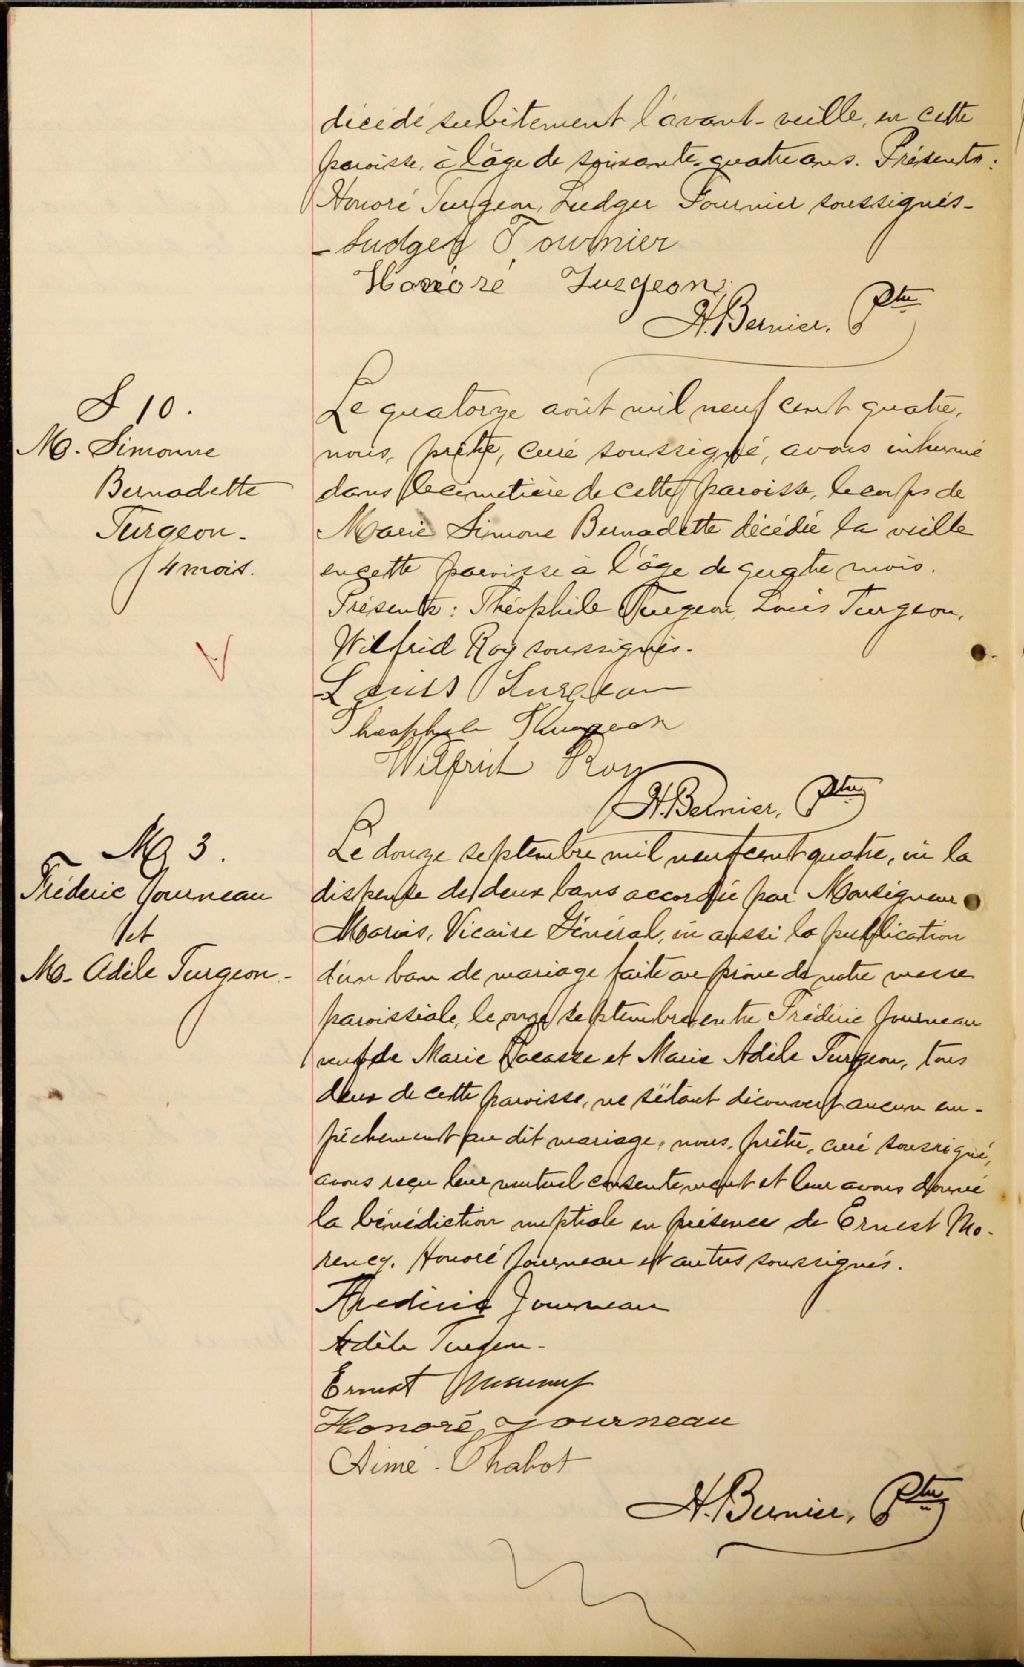 décédé subitement l'avant-veille, en cette
paroisse, à l'âge de soixante-quatre ans. Présents:
Honoré Turgeon, Ludger Fournier soussignés-
- Ludger Fournier
Honoré Turgeon
H. Bernier, Ptre
S 10.
M. Simonne
Bernadette
Turgeon-
4 mois.
Le quatorze août mil neuf cent quatre,
nous, prêtre, curé soussigné, avons inhumé
dans le cimetière de cette paroisse, le corps de
Marie Simone Bernadette décédée la veille
en cette paroisse à l'âge de quatre mois.
Présents: Théophile Turgeon, Louis Turgeon,
Wilfrid Roy soussignés.
Louis Turgeon
Theophile Thurgeon
Wilfrid Roy
H. Bernier, Ptre
M 3.
Fréderic Journeau
et
M. Adèle Turgeon-
Le douze septembre mil neuf cent quatre, vu la
dispense de deux bans accordée par Monseigneur
Marois, Vicaire Général, vu aussi la publication
d'un ban de mariage faite au prône de notre messe
paroissiale, le onze septembre, entre Fréderic Journeau
veuf de Marie Lacasse et Marie Adèle Turgeon, tous
deux de cette paroisse, ne s'étant découvert aucun em-
pêchement au dit mariage, nous, prêtre, curé soussigné,
avons reçu leur mutuel consentement et leur avons donné
la bénédiction nuptiale en présence de Ernest Mo-
rency, Honoré Journeau et autres soussignés.
Frederic Journeau
Adèle Turgeon-
Ernest Morency
Honoré Journeau
Aimé Chabot
H. Bernier, Ptre